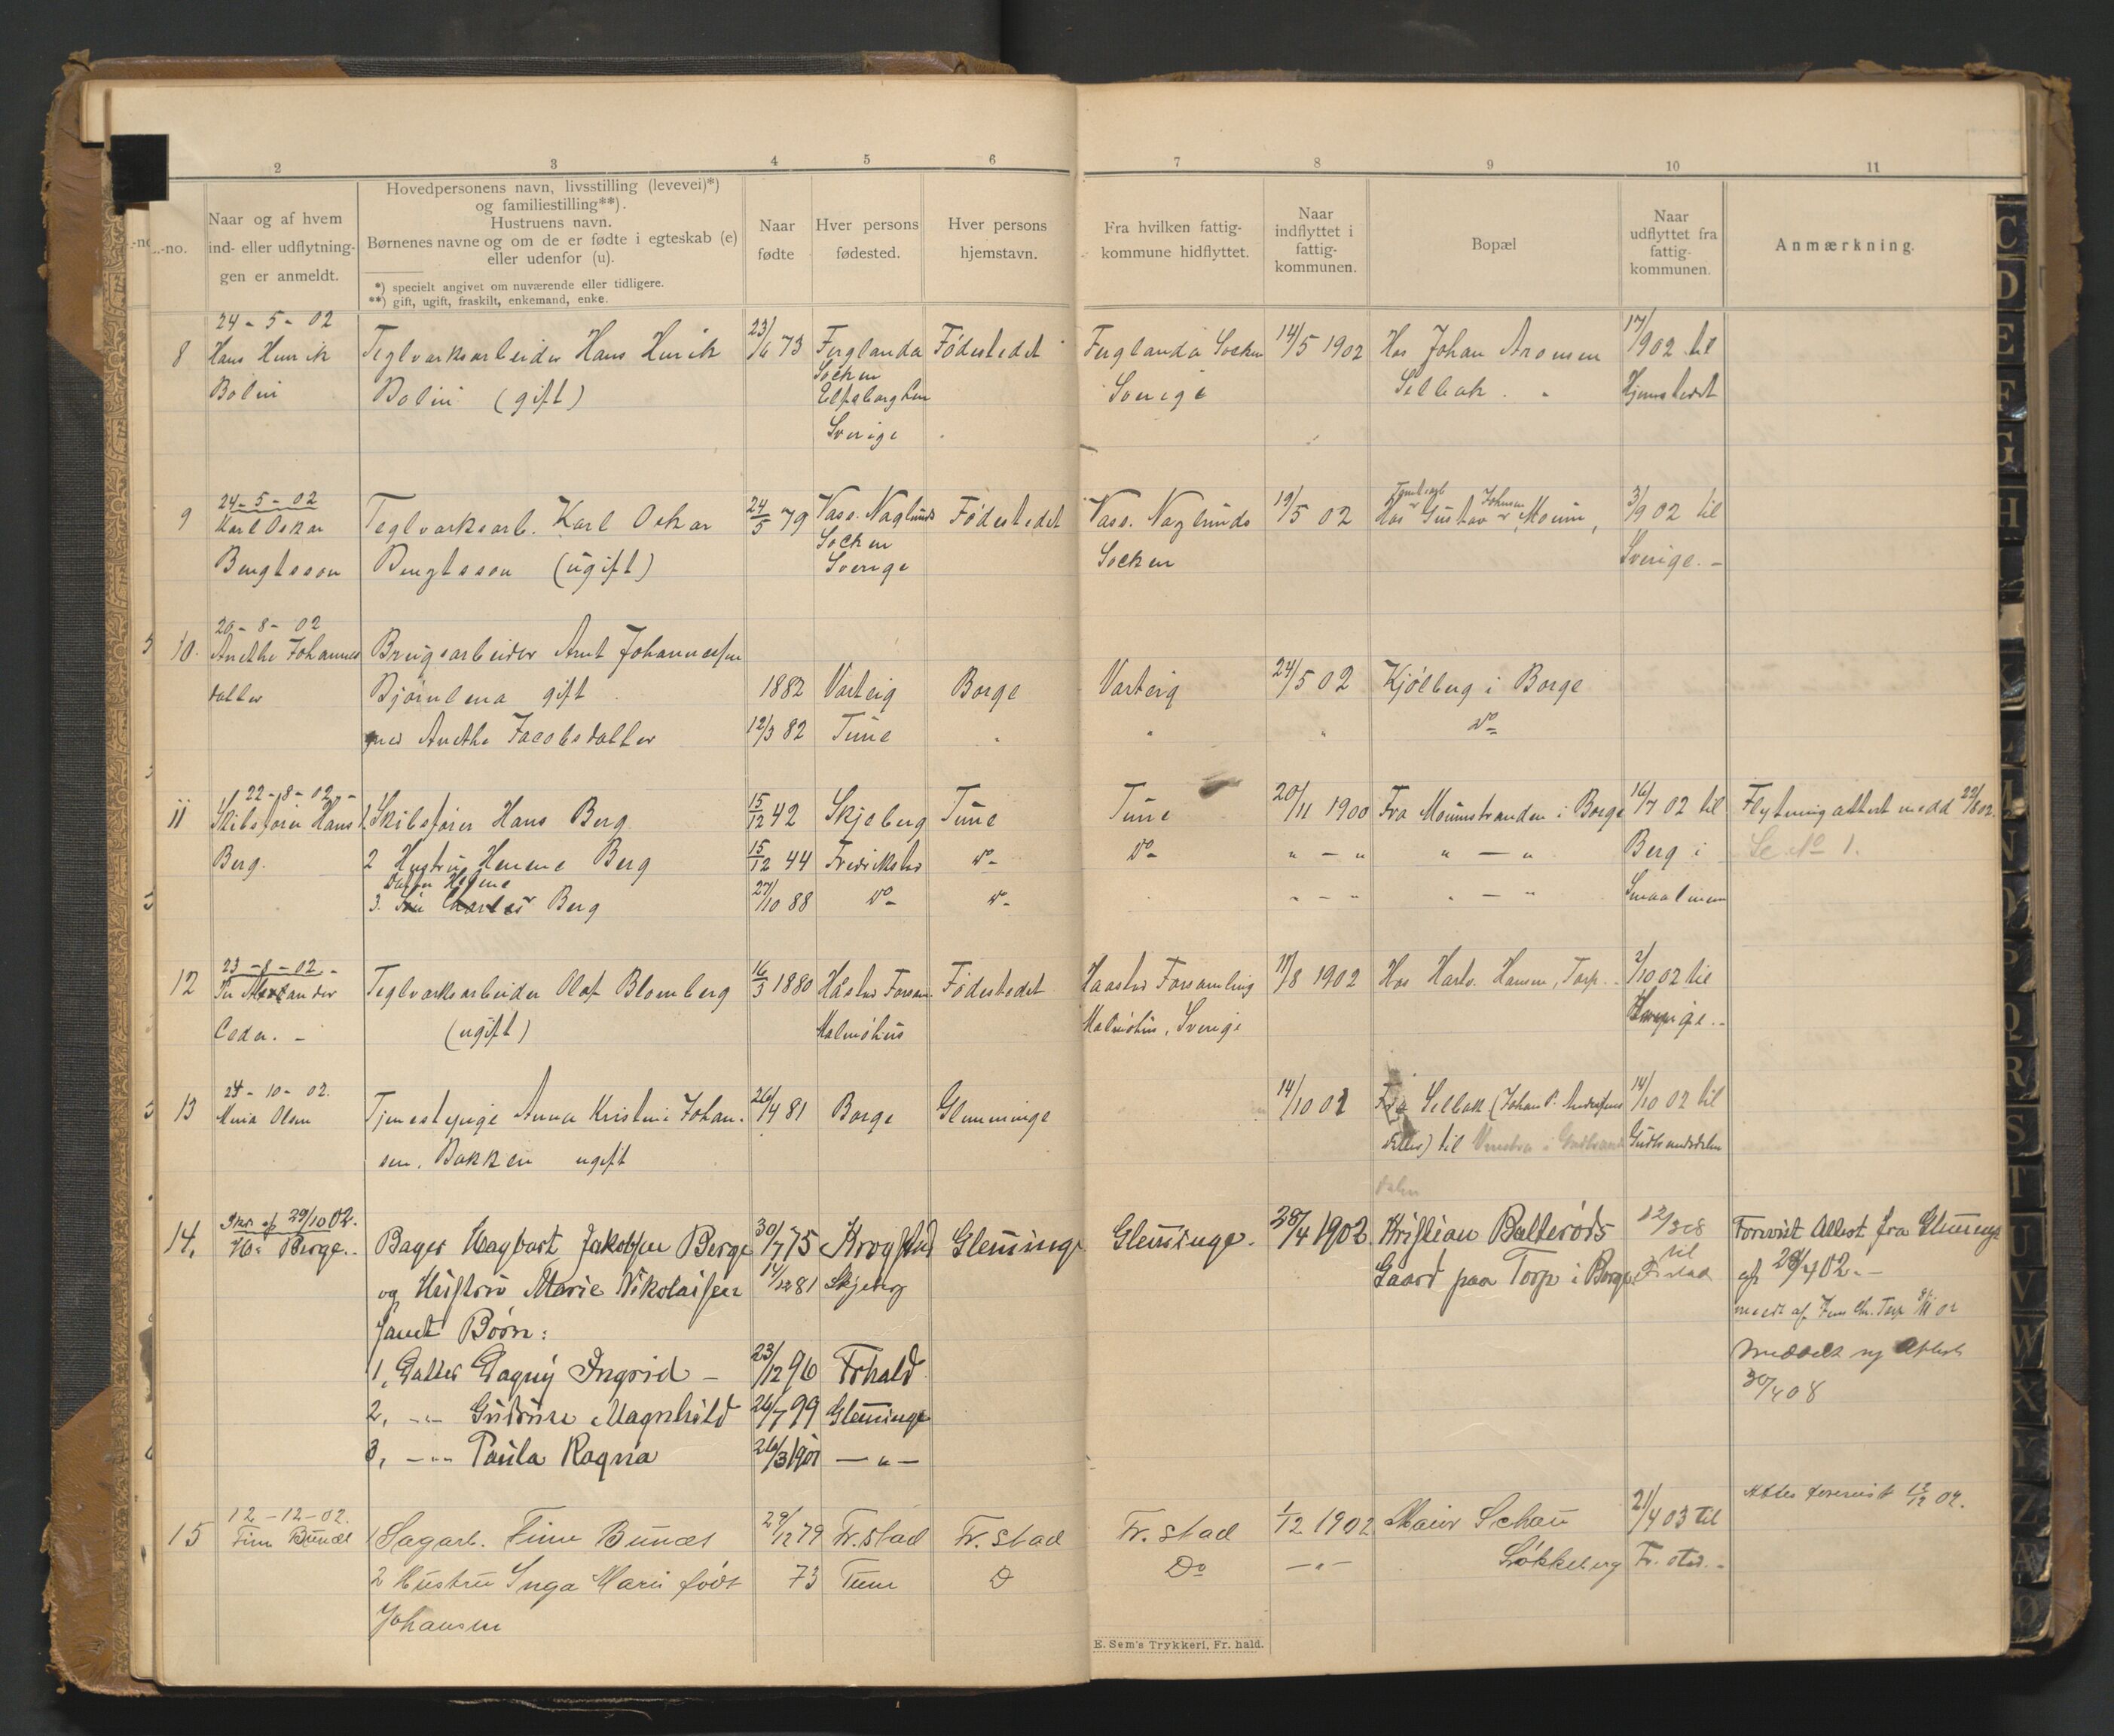 2 3 4 5 6 7 8 9 10 11
-no. Naar og af hvem
ind- eller udflytnin-
gen er anmeldt.
Hovedpersonens navn, livsstilling (levevei)*)
og familiestilling**).
Hustruens navn.
Børnenes navne og om de er fødte i egteskab (e)
eller udenfor (u).
*) specielt angivet om nuværende eller tidligere.
**) gift, ugift, fraskilt, enkemand, enke.
Naar
fødte
Hver persons
fødested.
Hver persons
hjemstavn.
Fra hvilken fattig-
kommune hidflyttet.
Naar
indflyttet i
fattig-
kommunen.
Bopæl
Naar
udflyttet fra
fattig-
kommunen.
Anmærkning.
24 - 5 - 02
8 Hans Henrik Teglværksarbeider Hans Henrik 23/6 73 Ferglanda Fødestedet Ferglanda Socken 14/5 1902 Hos Johan Aronsen 17/9 02 til
Bolin Bolin (gift) Socken Sverige Sellebak Hjemstedet
Elfsborg Len
Sverige
24 - 5 - 02
9 Karl Oskar Teglværksarb. Karl Oskar 24/5 79 Vase. Naglunds Fødestedet Vase. Naglunds 19/5 02 Hos Gustav Johnsen Moum, 3/9 02 til
Bengtsson Bengtsson (ugift) Socken Socken Sverige. -
Sverige
20 - 8 - 02
10. Anethe Johannes Brugsarbeider Arnt Johannessen
datter Bjørnlena gift 1882 Varteig Borge Varteig 24/5 02 Kjølberg i Borge
med Anethe Jacobsdatter 12/3 82 Tune " " " do
22 - 8 - 02 -
11 Skibsfører Hans 1 Skibsfører Hans Berg 15/12 42 Skjeberg Tune Tune 20/11 1900 Fra Moumstranden i Borge 16/7 02 til Flytningsattest medd 22/8 02.
Berg. 2 Hustru Henene Berg 15/12 44 Fredrikstad do do " - " " - " Berg i Se No 1.
Datter Helene
3. Charles Berg 27/10 88 do do " - " " - " Smaalenen
23 - 8 - 02 -
12 Per Alexander Teglværksarbeider Olof Blomberg 16/3 1880 Håstad Forsam. Fødestedet Haastad Forsamling 11/8 1902 Hos Harts. Hansen, Torp. 2/10 02 til
Ceder. - (ugift) Malmöhus Malmöhus, Sverige Sverige. -
24 - 10 - 02.
13 Maria Olsen Tjenestepige Anna Kristine Johan- 26/4 81 Borge Glemminge 14/10 02 Fra Sellebak (Johan P. Andersens 14/10 02 til
sen, Bakken ugift til Vinstra i Gudbrands Gudbrandsdalen
dalen
Skr. af 29/10 02.
14. H. Berge. Bager Hagbart Jakobsen Berge 30/7 75 Krogstad Glemminge Glemminge. 28/4 1902 Kristian Balterøds 12/3 08 Forevist Attest fra Glemminge
og Hustru Marie Nikolaisen 14/12 81 Skjeberg Gaard paa Torp i Borge til Fr.stad af 28/4 02. -
samt Børn: meldt af Chr. Torp 8/11 02
1, Datter Dagny Ingrid - 23/12 96 Frhald Meddelt ny Attest
2, - " - Gudrun Magnhild 26/7 99 Glemminge 30/4 08
3, - " - Paula Ragna 26/3 1901 - " -
12 - 12 - 02. Attest forevist 12/12 02.
15 Finn Bunæs 1 Sagarb. Finn Bunæs 29/12 79 Fr.stad Fr. stad Fr. stad 1/12 1902 Maier Schau 21/4 03 til
2 Hustru Inga Marie født 73 Tune D Do - " - Løkkeberg Fr. stad. -
Johansen
E. Sem's Trykkeri, Fr. hald.
C
D
E
F
G
H
N
O
P
Q
R
S
T
U
V
W
X
Y
Z